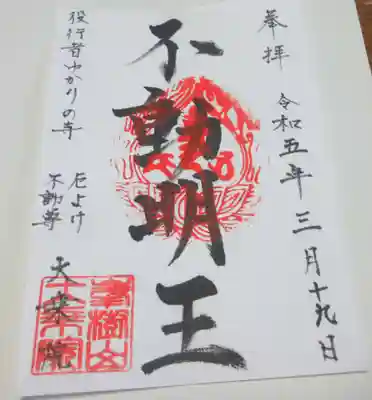 奉拝
令和五年三月十九日
不動明王
役行者ゆかりの寺
厄よけ
不動尊